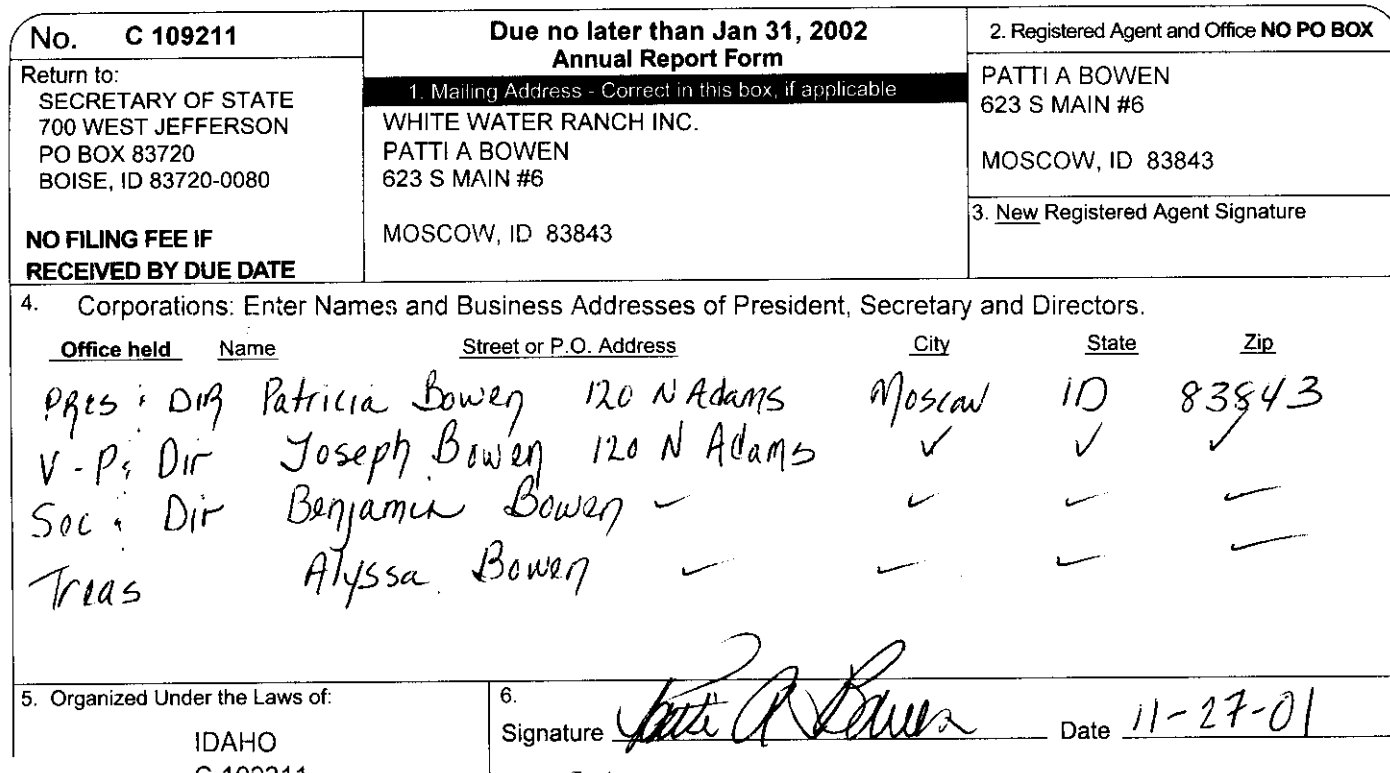 No. C 109211
Return to:
SECRETARY OF STATE
700 WEST JEFFERSON
PO BOX 83720
BOISE, ID 83720-0080
NO FILING FEE IF
RECEIVED BY DUE DATE
Due no later than Jan 31, 2002
Annual Report Form
1. Mailing Address - Correct in this box, if applicable
WHITE WATER RANCH INC.
PATTI A BOWEN
623 S MAIN #6
MOSCOW, ID 83843
2. Registered Agent and Office NO PO BOX
PATTI A BOWEN
623 S MAIN #6
MOSCOW, ID 83843
3. New Registered Agent Signature
4. Corporations: Enter Names and Business Addresses of President, Secretary and Directors.
Office held Name Street or P.O. Address City State Zip
Pres & Dir Patricia Bowen 120 N Adams Moscow ID 83843
V-P & Dir Joseph Bowen 120 N Adams ✓ ✓ ✓
Sec & Dir Benjamin Bowen ✓ ✓ ✓ ✓
Treas Alyssa Bowen ✓ ✓ ✓ ✓
5. Organized Under the Laws of:
IDAHO
C 109211
6.
Signature Patti A Bowen Date 11-27-01